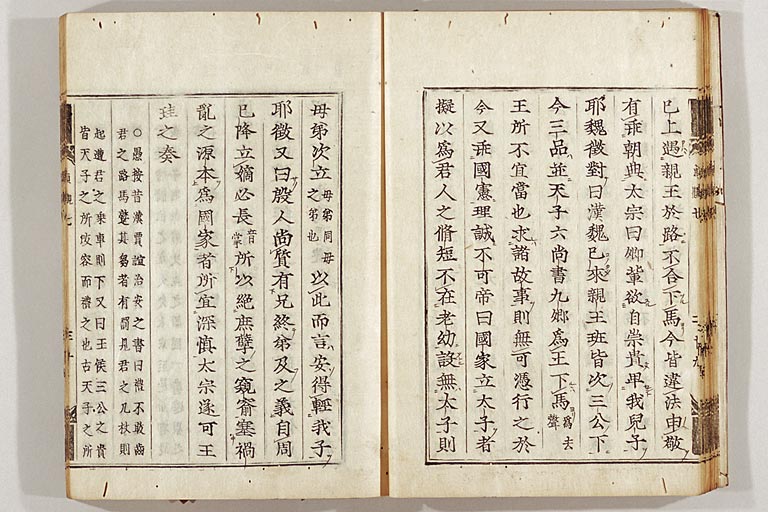 已上遇親王於路不合下馬今皆違法申敬
有乖朝典太宗曰卿輩欲自崇貴卑我兒子
耶魏徵對曰漢魏已來親王班皆次三公下
今三品並天子六尚書九卿爲王下馬爲去聲
王所不宜當也求諸故事則無可憑行之於
今又乖國憲理誠不可帝曰國家立太子者
擬以爲君人之脩短不在老幼設無太子則
母弟次立母弟同母之弟也以此而言安得輕我子
耶徵又曰殷人尚質有兄終弟及之義自周
已降立嫡必長音掌所以絕庶孽之窺窬塞禍
亂之源本爲國家者所宜深慎太宗遂可王
珪之奏
○愚按昔漢賈誼治安之書曰禮不敢齒
君之路馬蹵其芻者有罰見君之几杖則
起遭君之乘車則下又曰王侯三公之貴
皆天子之所改容而禮之也古天子之所